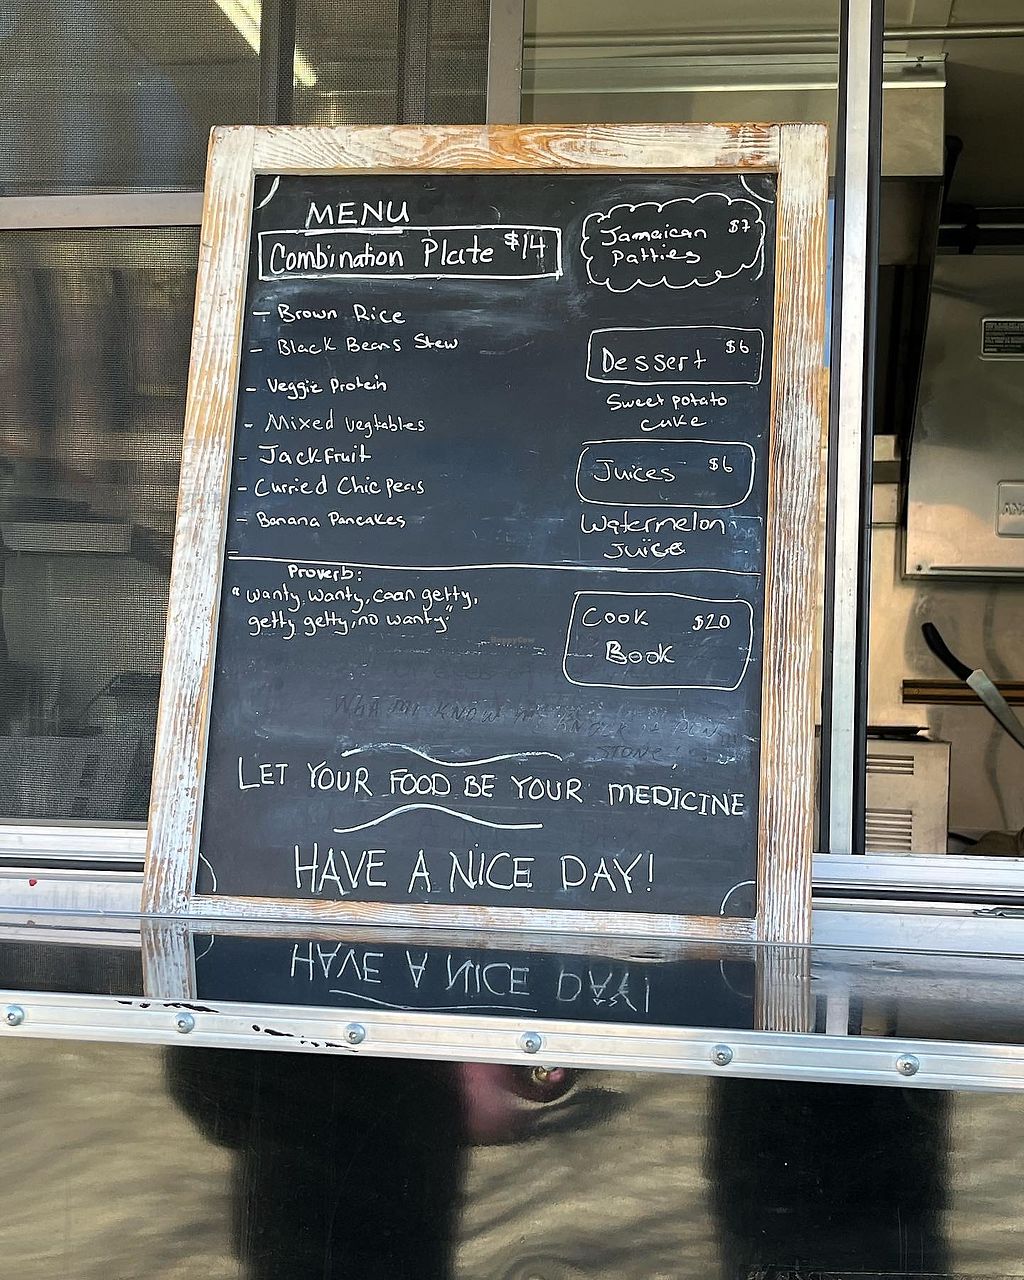 MENU
Combination Plate $14
- Brown Rice
- Black Beans Stew
- Veggie Protein
- Mixed Vegtables
- Jackfruit
- Curried Chic Peas
- Banana Pancakes
Jamaican $7
Patties
Dessert $6
Sweet potato
cake
Juices $6
Watermelon
Juice
Proverb:
"Wanty wanty, caan getty,
getty getty, no wanty"
Cook $20
Book
HappyCow
LET YOUR FOOD BE YOUR MEDICINE
HAVE A NICE DAY!
HAVE A NICE DAY!